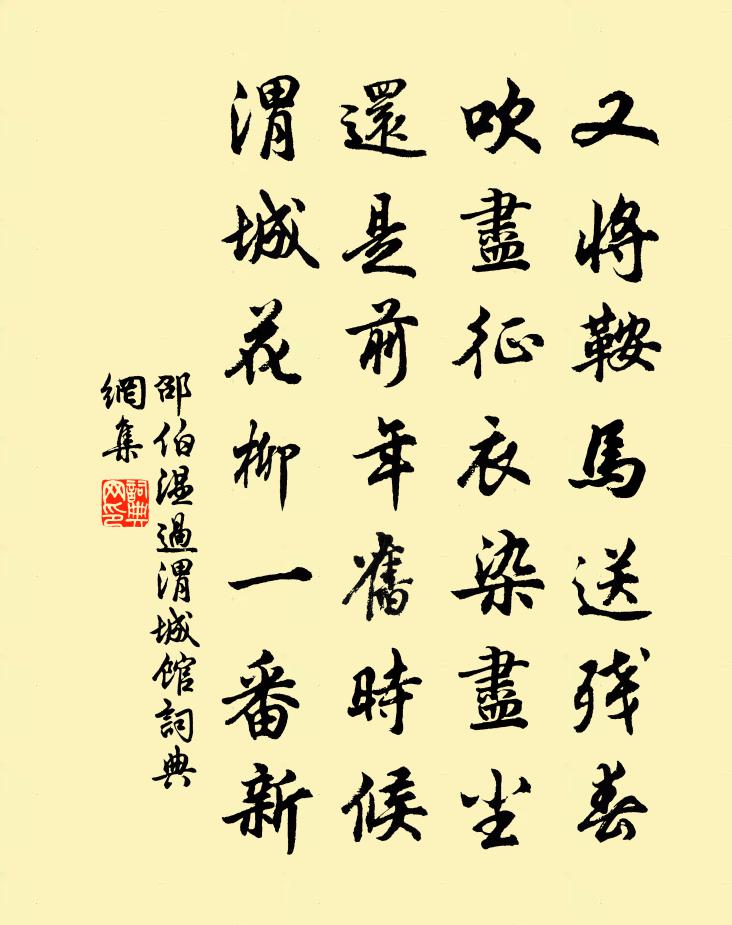 又將鞍馬送残春
吹盡征衣染盡尘
還是前年舊時候
渭城花柳一番新
邵伯温過渭城館詞典
網集
詞典
网印